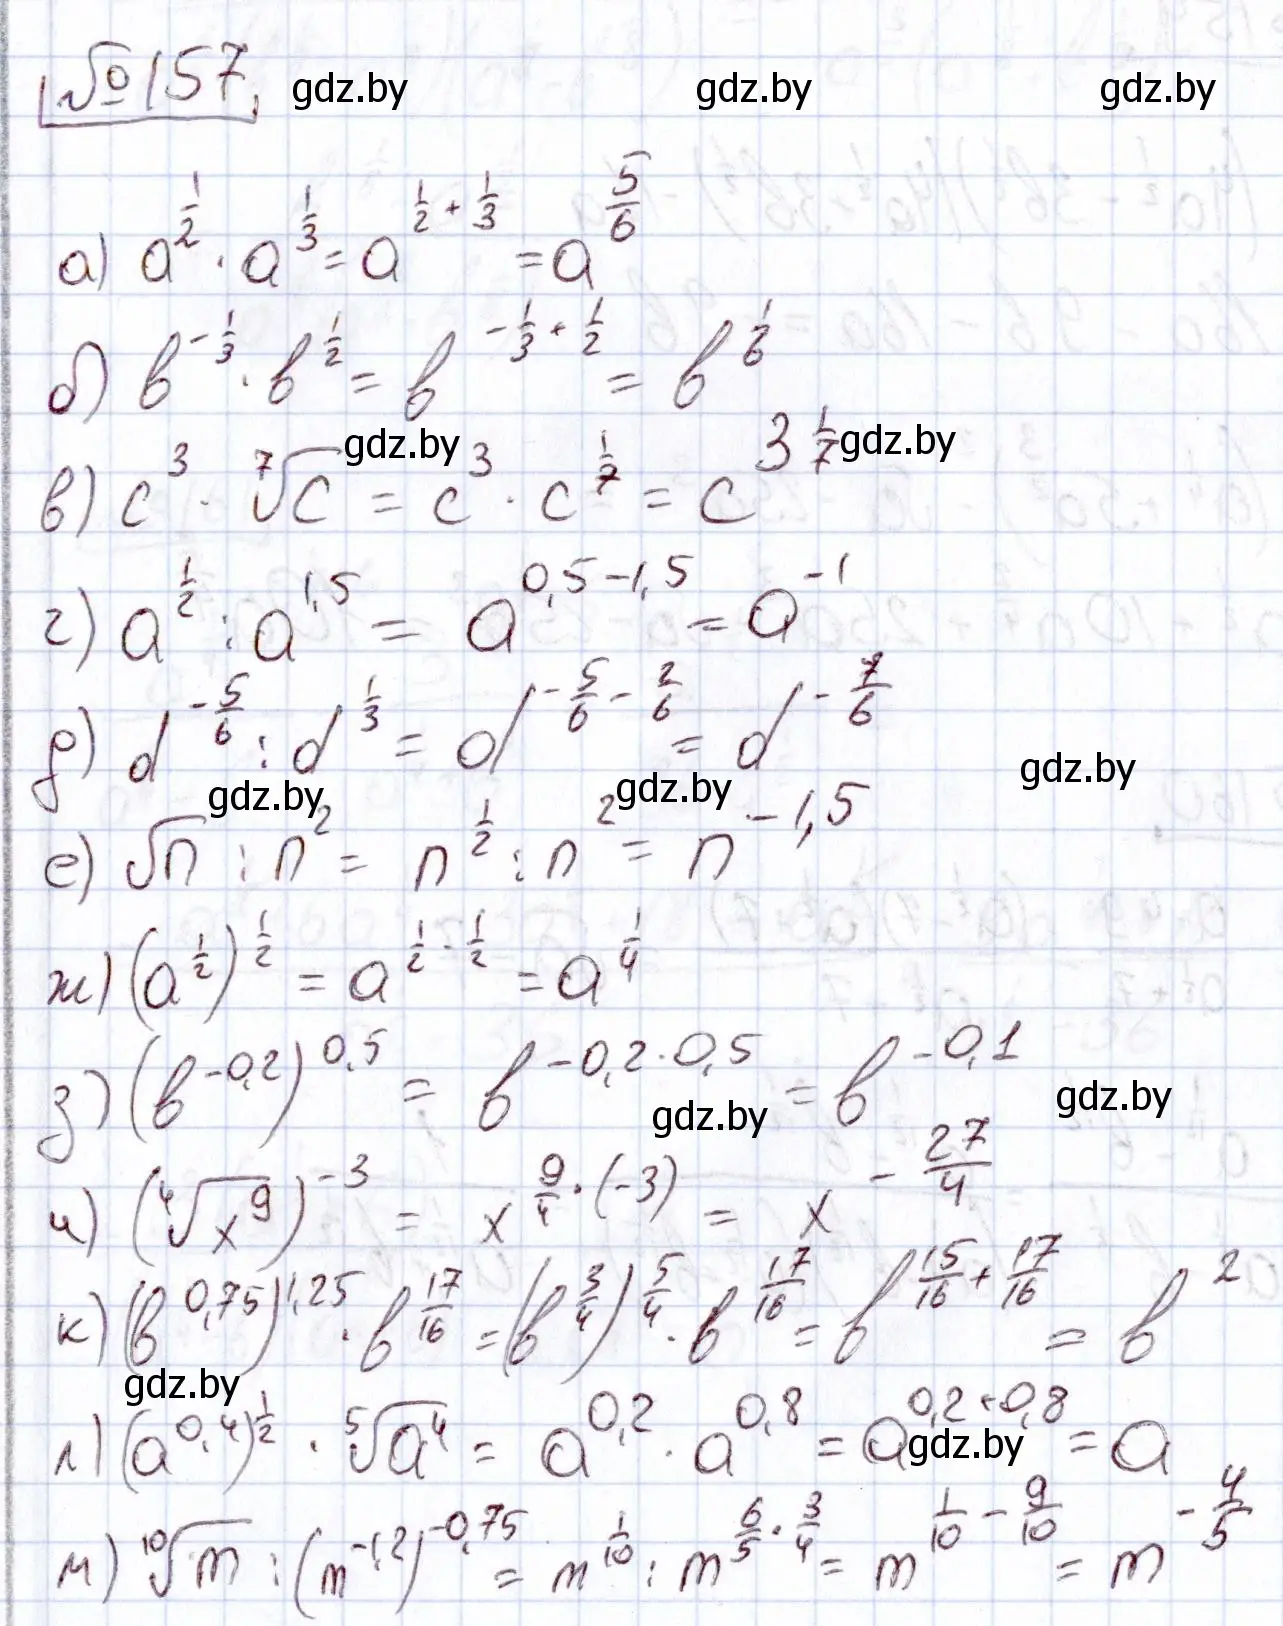 №157. gdz.by gdz.by gdz.by
а) a^{1/2} · a^{1/3} = a^{1/2 + 1/3} = a^{5/6}
б) b^{-1/3} · b^{1/2} = b^{-1/3 + 1/2} = b^{1/6}
gdz.by gdz.by
в) c^3 · \sqrt[7]{c} = c^3 · c^{1/7} = c^{3 1/7}
г) a^{1/2} : a^{1,5} = a^{0,5-1,5} = a^{-1}
д) d^{-5/6} : d^{1/3} = d^{-5/6 - 2/6} = d^{-7/6}
gdz.by gdz.by gdz.by
е) \sqrt{n} : n^2 = n^{1/2} : n^2 = n^{-1,5}
ж) (a^{1/2})^{1/2} = a^{1/2 · 1/2} = a^{1/4}
з) (b^{-0,2})^{0,5} = b^{-0,2 · 0,5} = b^{-0,1}
gdz.by gdz.by
и) (\sqrt[4]{x^9})^{-3} = x^{9/4 · (-3)} = x^{-27/4}
к) (b^{0,75})^{1,25} · b^{17/16} = (b^{3/4})^{5/4} · b^{17/16} = b^{15/16 + 17/16} = b^2
gdz.by
л) (a^{0,4})^{1/2} · \sqrt[5]{a^4} = a^{0,2} · a^{0,8} = a^{0,2+0,8} = a
gdz.by
м) \sqrt[10]{m} : (m^{-1,2})^{-0,75} = m^{1/10} : m^{6/5 · 3/4} = m^{1/10 - 9/10} = m^{-4/5}